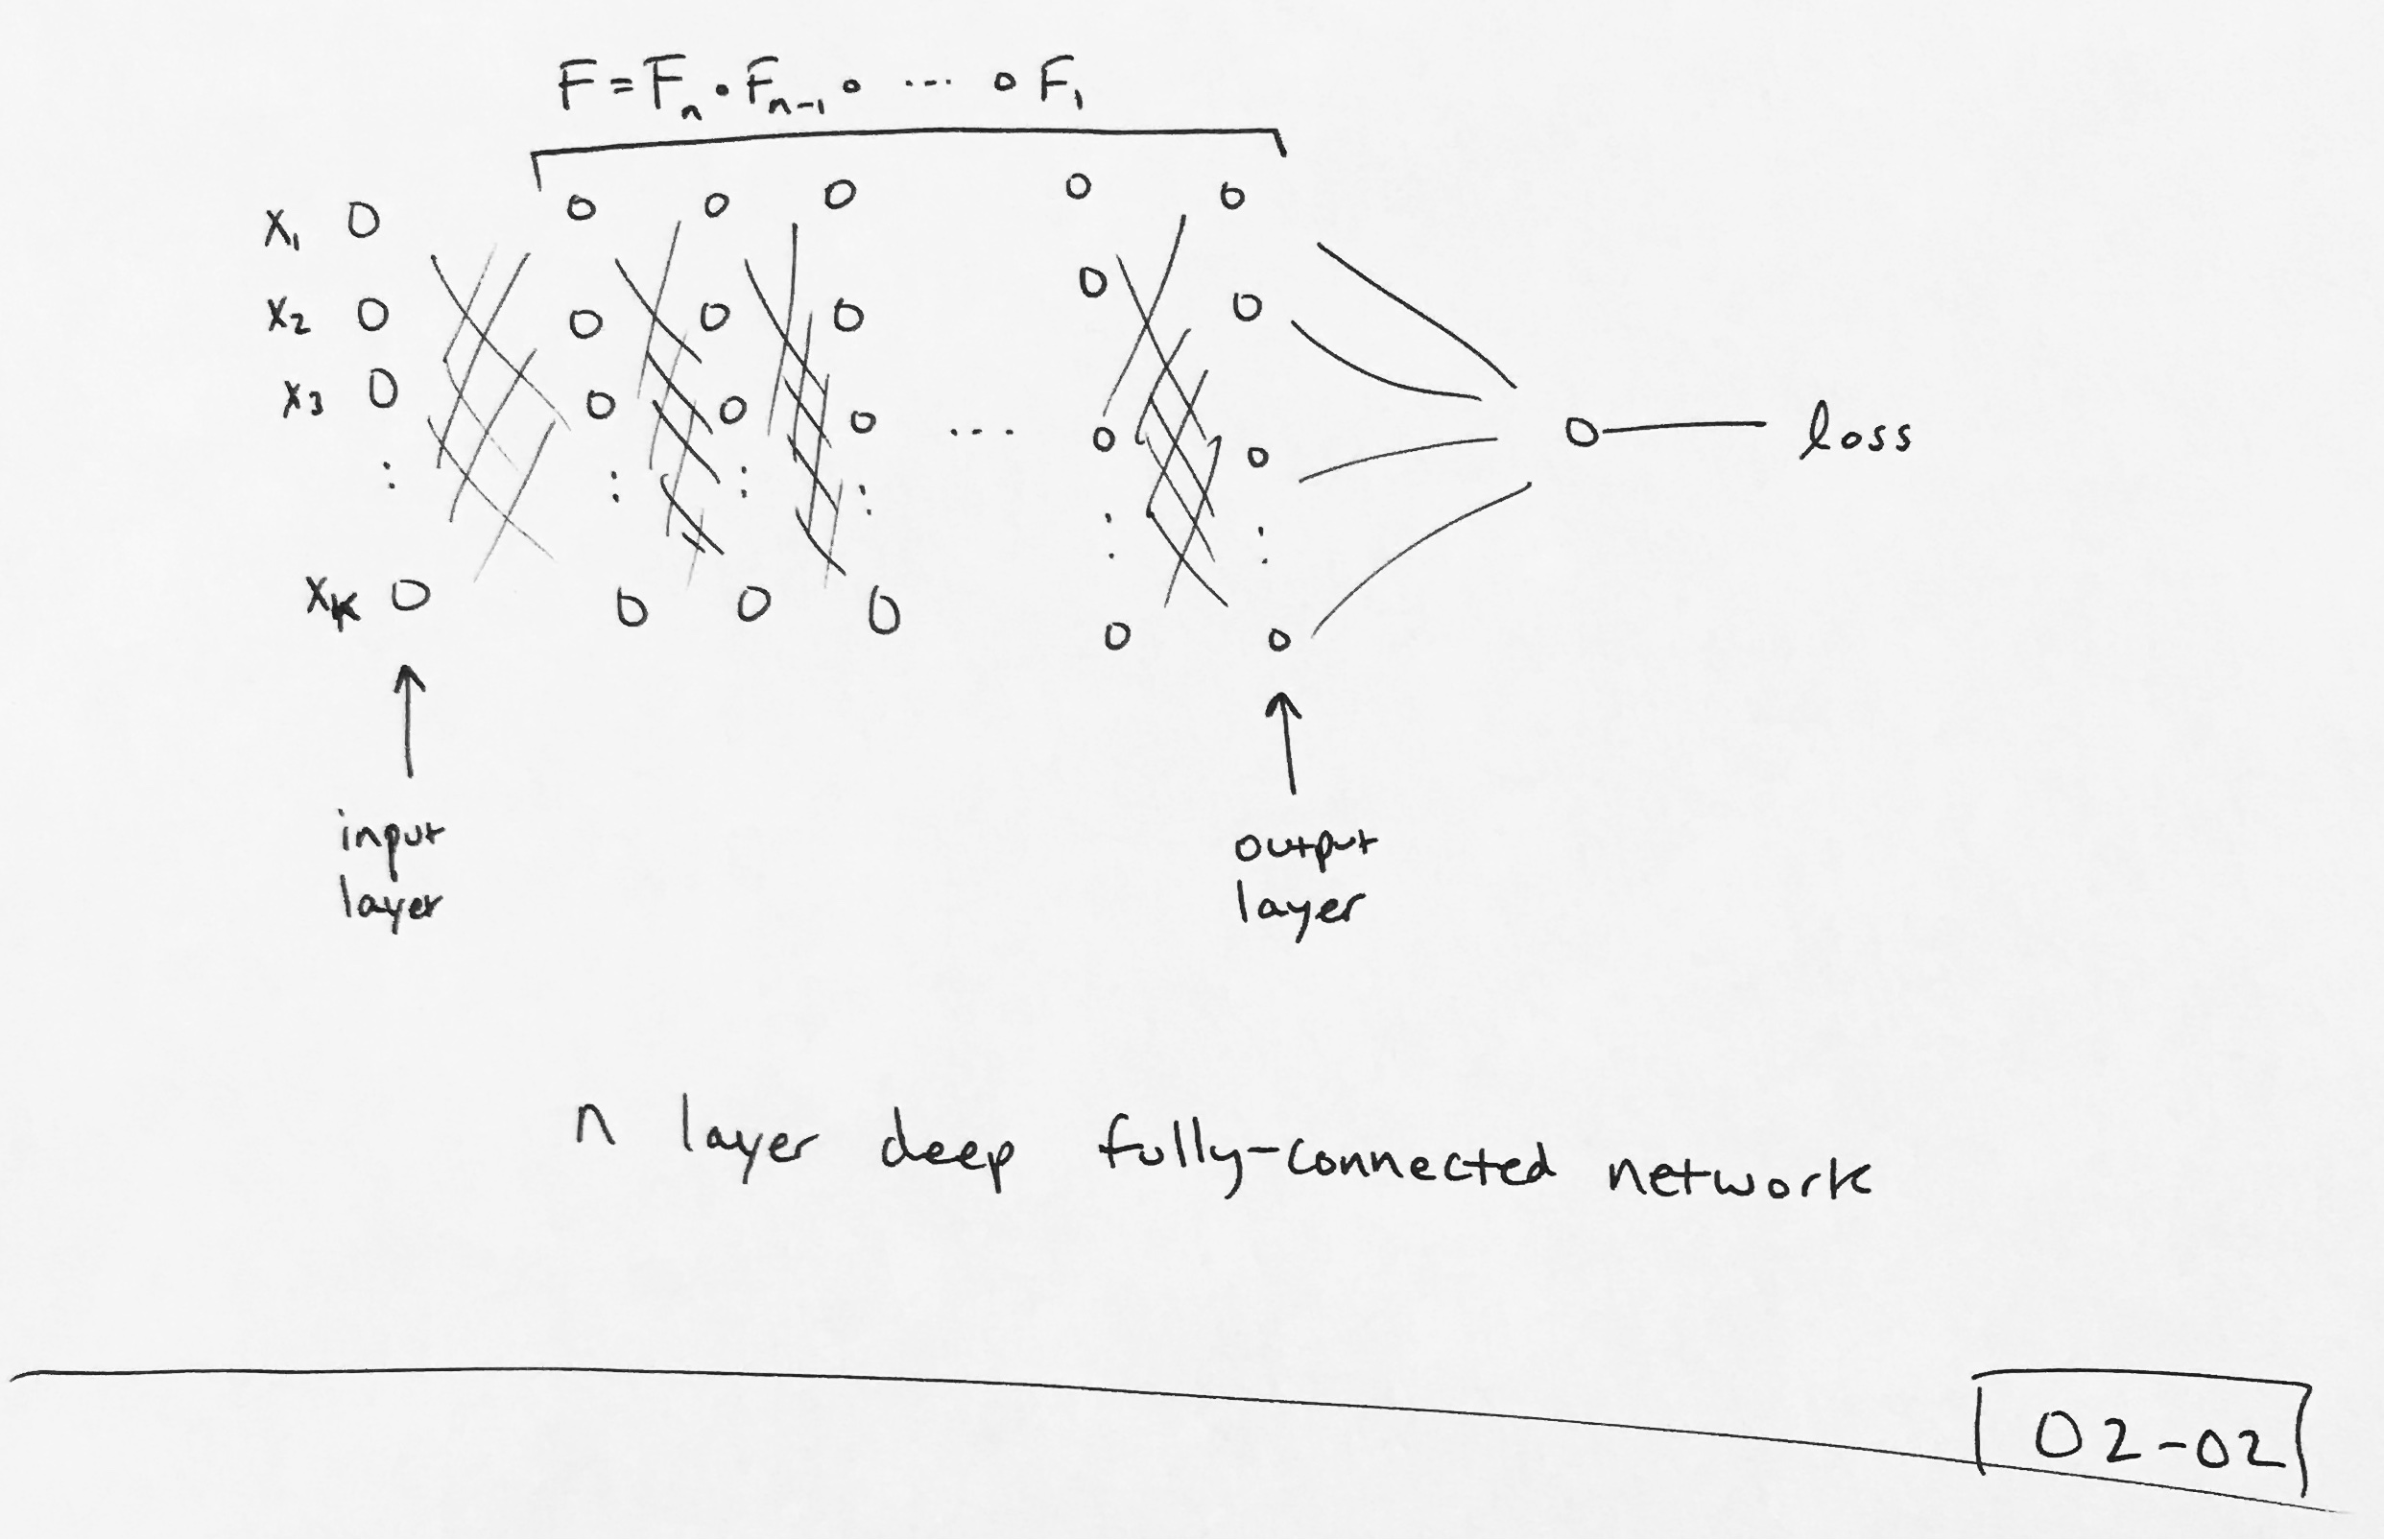 F = Fn ∘ Fn-1 ∘ ... ∘ F1
x1
x2
x3
⋮
xk
...
loss
input
layer
output
layer
n layer deep fully-connected network
02-02